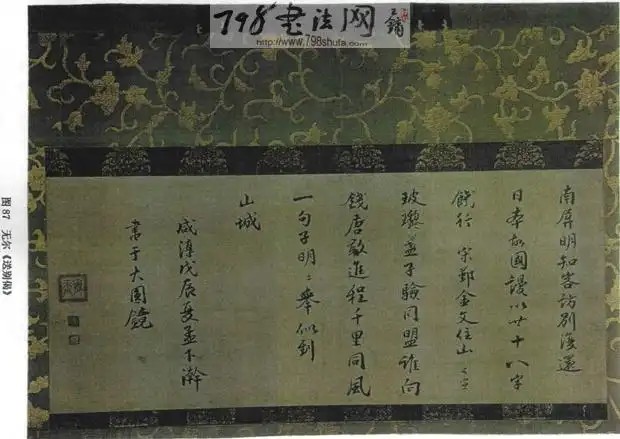 798书法网
http://www.798shufa.com
南屏明知客訪別還
日本故國謾以廿十八字
餞行 宋鄞金文住山
玻瓈盞子驗同盟誰向
錢唐敢進程千里同風
一句子明〻舉似到
山城
咸淳戊辰夏孟下澣
書于大圓鏡
图 87 无尔《送别偈》